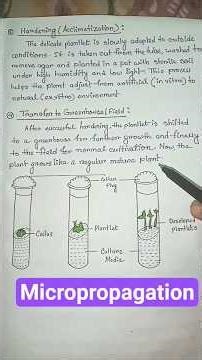 Hardening (Acclimatization) :
The delicate plantlet is slowly adapted to outside
conditions. It is taken out from the tube, washed to
remove agar and planted in a pot with sterile soil
under high humidity and low light. This process
helps the plant adjust from artificial (in vitro) to
natural (ex vitro) environment
Transfer to Greenhouse/Field :
After successful hardening, the plantlet is shifted
to a greenhouse for further growth and finally
to the field for normal cultivation. Now the
plant grows like a regular mature plant
Cotton
Plug
Callus
Plantlet
Culture
Media
Developed
Plantlets
Micropropagation